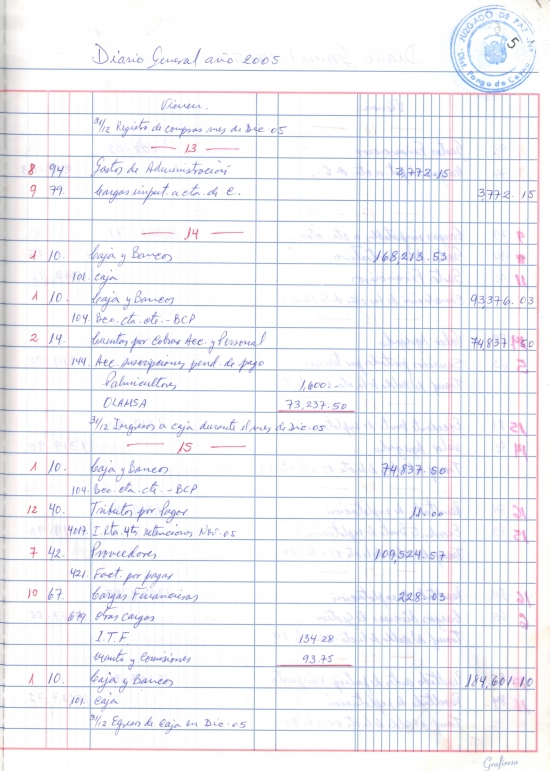 JUZGADO DE PAZ
5
Diario General año 2005
Vienen.
31/12 Registro de compras mes de Dic. 05
13
8 94. Gastos de Administración 3,772.15
9 79. Cargas imput. a cta. de C. 3772.15
14
1 10. Caja y Bancos 168,213.53
101. Caja
1 10. Caja y Bancos 93,376.03
104. Bco. cta. cte. - BCP
2 14. Cuentas por Cobrar Acc. y Personal 74,837.50
144. Acc. suscripciones pend. de pago
Palmicultores 1,600.-
OLAMSA 73,237.50
31/12 Ingresos a caja durante el mes de Dic. 05
15
1 10. Caja y Bancos 74,837.50
104. Bco. cta. cte. - BCP
12 40. Tributos por Pagar 11.00
4017. I. Rta. 4ta retenciones Nov. 05
7 42. Proveedores 109,524.57
421. Fact. por pagar
10 67. Cargas Financieras 228.03
679. Otras cargas
I.T.F 134.28
Mantto y Comisiones 93.75
1 10. Caja y Bancos 184,601.10
101. Caja
31/12 Egresos de Caja en Dic. 05